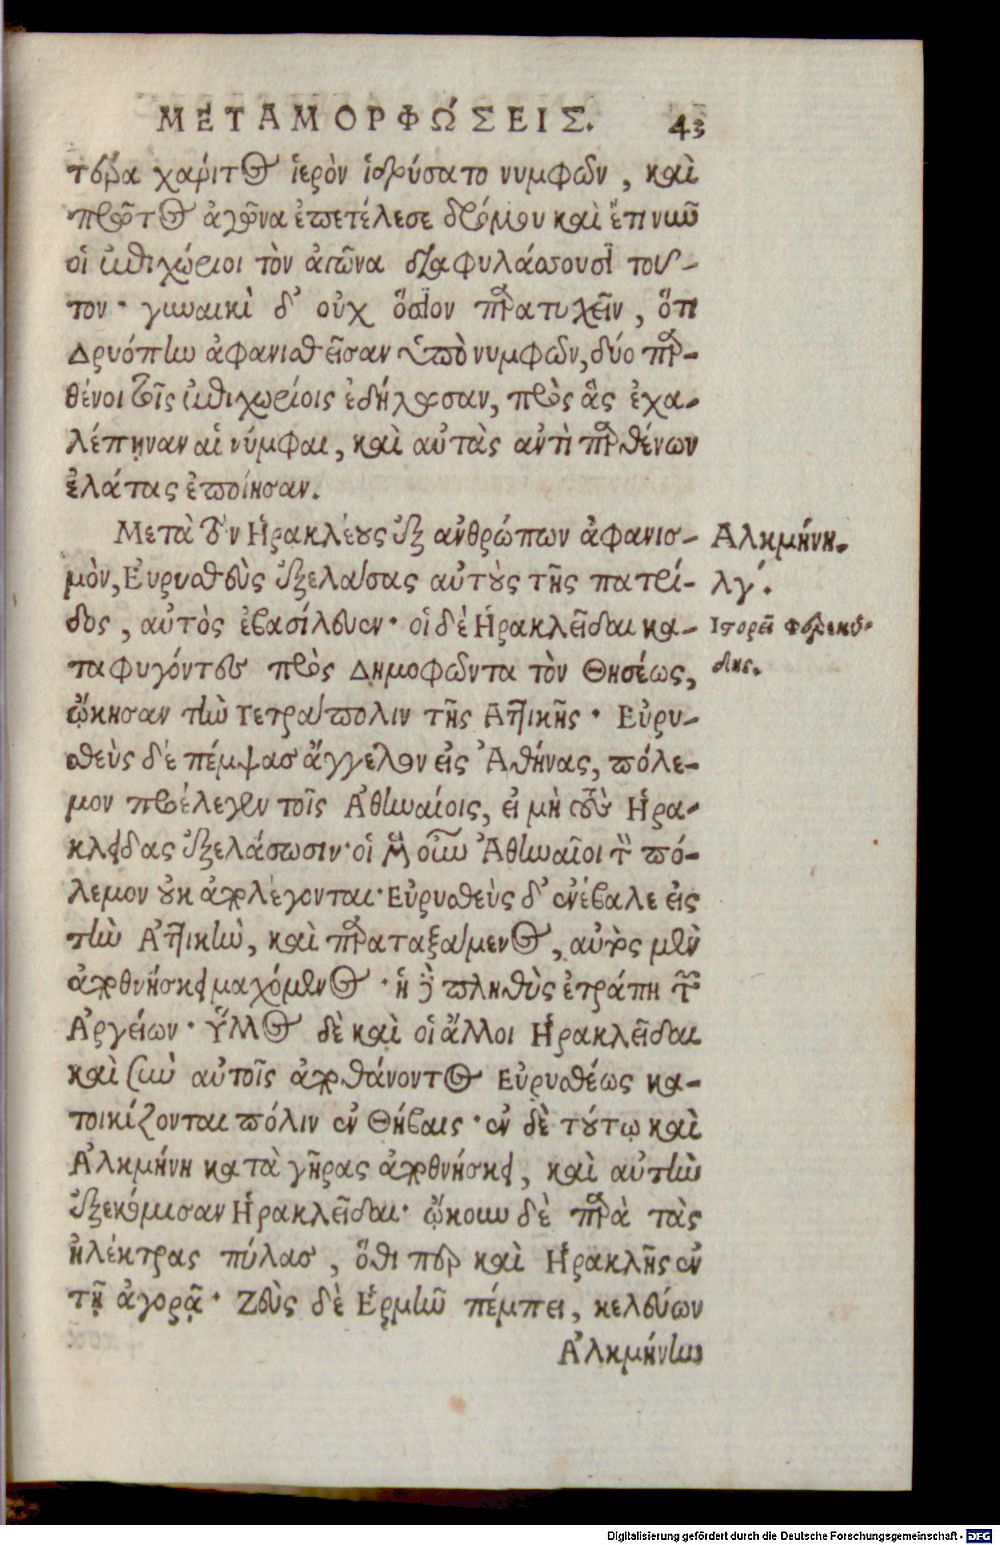 ΜΕΤΑΜΟΡΦΏΣΕΙΣ. 43
τέρα χάριτος ἱερὸν ἱδρύσατο νυμφῶν, καὶ
πρῶτος ἀγῶνα ἐπετέλεσε δρόμου καὶ ἔτι νῦν
οἱ ἐπιχώριοι τὸν ἀγῶνα διαφυλάσσουσι τοῦ-
τον· γυναικὶ δ' οὐχ ὅσιον παρατυχεῖν, ὅτι
Δρυόπην ἀφανισθεῖσαν ὑπὸ νυμφῶν, δύο παρ-
θένοι τοῖς ἐπιχωρίοις ἐδήλωσαν, πρὸς ἃς ἐχα-
λέπηναν αἱ νύμφαι, καὶ αὐτὰς ἀντὶ παρθένων
ἐλάτας ἐποίησαν.
Μετὰ τὸν Ἡρακλέους ἐξ ἀνθρώπων ἀφανισ-
μὸν, Εὐρυσθεὺς ἐξελάσας αὐτοὺς τῆς πατρί-
δος, αὐτὸς ἐβασίλευεν· οἱ δὲ Ἡρακλεῖδαι κα-
ταφυγόντες πρὸς Δημοφῶντα τὸν Θησέως,
ᾤκησαν τὴν τετράπολιν τῆς Ἀττικῆς· Εὐρυ-
σθεὺς δὲ πέμψας ἄγγελον εἰς Ἀθήνας, πόλε-
μον προέλεγεν τοῖς Ἀθηναίοις, εἰ μὴ τοὺς Ἡρα-
κλείδας ἐξελάσωσιν· οἱ μὲν οὖν Ἀθηναῖοι τὸν πό-
λεμον οὐκ ἀπολέγονται· Εὐρυσθεὺς δ' ἐνέβαλε εἰς
τὴν Ἀττικὴν, καὶ παραταξάμενος, αὐτὸς μὲν
ἀποθνήσκει μαχόμενος· ἡ δὲ πληθὺς ἐτράπη τῶν
Ἀργείων· Ὕλλος δὲ καὶ οἱ ἄλλοι Ἡρακλεῖδαι
καὶ σὺν αὐτοῖς ἀποθανόντος Εὐρυσθέως κα-
τοικίζονται πόλιν ἐν Θήβαις· ἐν δὲ τούτῳ καὶ
Ἀλκμήνη κατὰ γῆρας ἀποθνήσκει, καὶ αὐτὴν
ἐξεκόμισαν Ἡρακλεῖδαι· ᾤκουν δὲ παρὰ τὰς
ἠλέκτρας πύλας, ὅθι περ καὶ Ἡρακλῆς ἐν
τῇ ἀγορᾷ· Ζεὺς δὲ Ἑρμῆν πέμπει, κελεύων
Ἀλκμήνην
Ἀλκμήνη.
λγ΄.
Ἱστορεῖ Φερεκύ-
δης.
Digitalisierung gefördert durch die Deutsche Forschungsgemeinschaft - DFG